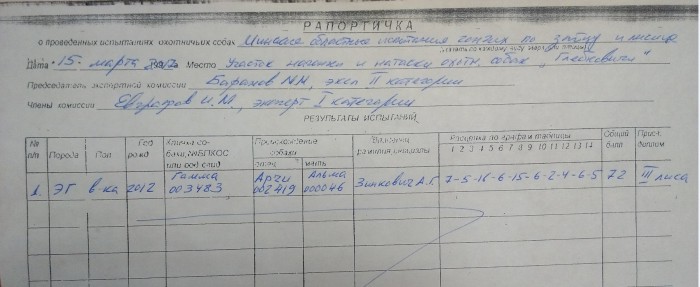 РАПОРТИЧКА
о проведенных испытаниях охотничьих собак Минские областные испытания гончих по зайцу и лисице
Дата 15 марта Место Участок нагонки и натаски охотн. собак "Глебковичи"
Председатель экспертной комиссии Баранов Н.Н., эксп II категории
Члены комиссии И.М, эксперт I категории
РЕЗУЛЬТАТЫ ИСПЫТАНИЙ
№ п/п Порода Пол Год рожд Кличка собаки, №ВПКОС или род след Происхождение собаки отец мать Владелец фамилия, инициалы Расценка по графам таблицы 1 2 3 4 5 6 7 8 9 10 11 12 13 14 Общий балл Присв. диплом
1. ЭГ в-ка 2012 Гамма 003483 Арчи 002419 Альма 000046 Зинкевич А.Г. 7-5-16-6-15-6-2-4-6-5 72 III лиса